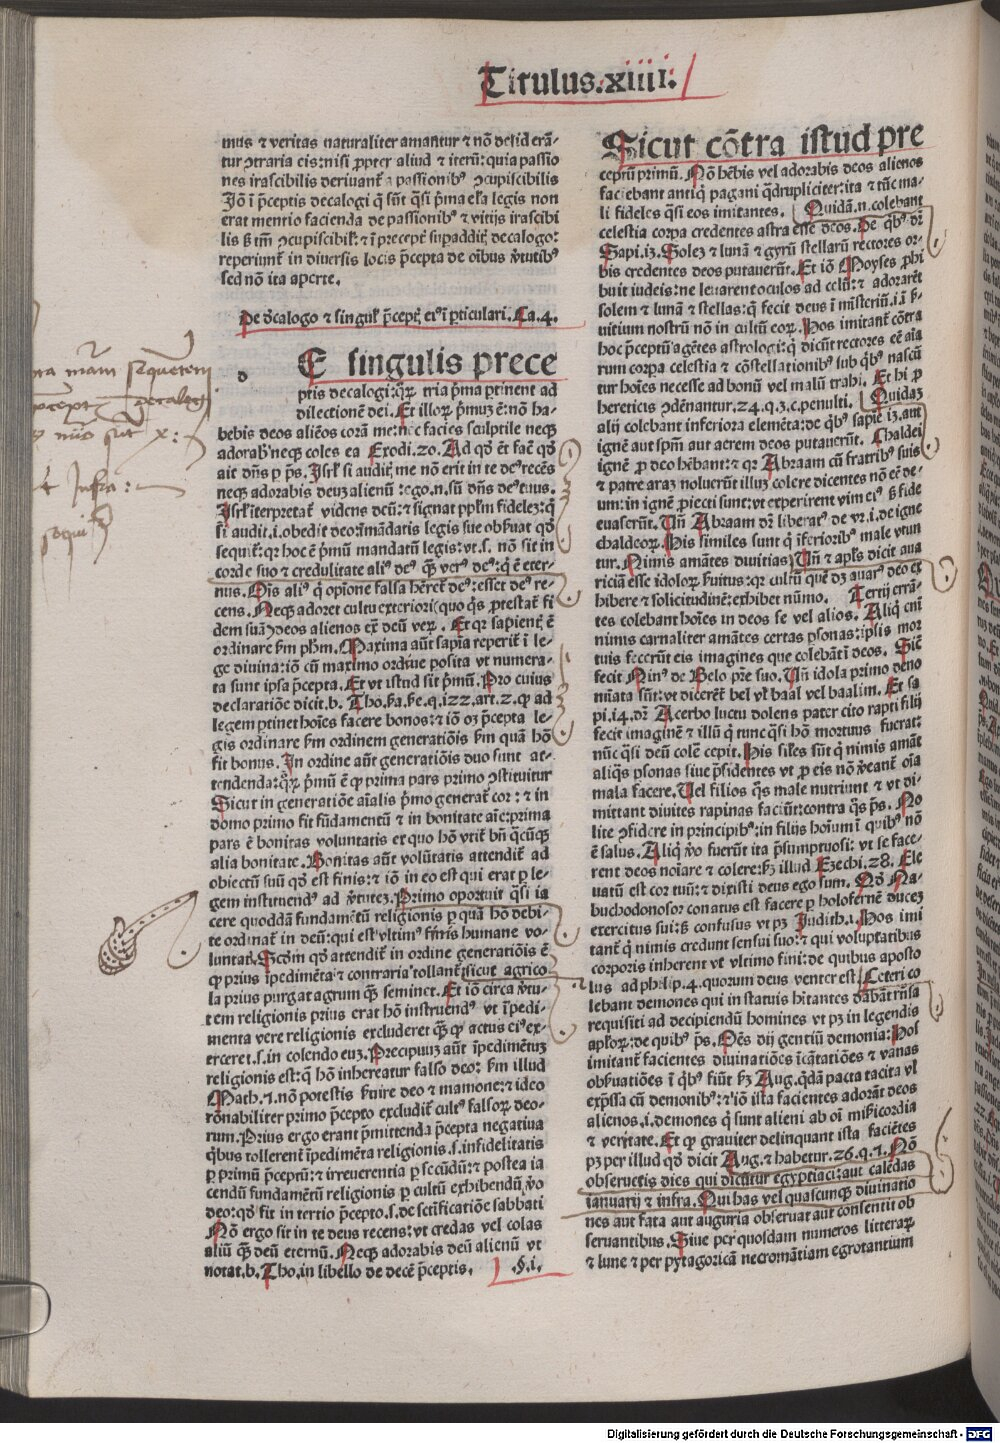 Titulus.xiiii.
mus ⁊ veritas naturaliter amantur ⁊ nō desiderā-
tur ꝯtraria eis: nisi ꝓpter aliud ⁊ iterū: quia passio
nes irascibilis deriuant̄ a passionibꝰ ꝯcupiscibilis
Jō ī p̄ceptis decalogi q̄ sūt q̄si p̄ma el̄a legis non
erat mentio facienda de passionibꝰ ⁊ vitijs irascibi
lis ꝫ tm̄ ꝯcupiscibil̄: ⁊ ī precept̄ supaddit̄ decalogo:
reperiunt̄ in diuersis locis p̄cepta de oībus v̄tutibꝰ
sed nō ita aperte.
De d̄calogo ⁊ singul̄ p̄cept̄ eiꝰ ī ꝑticulari. Ca.4.
d
E singulis prece
ptis decalogi: q̄ꝝ tria p̄ma ꝑtinent ad
dilectionē dei. Et illoꝝ p̄muꝫ ē: nō ha-
bebis deos aliēos corā me: nec facies sculptile neqꝫ
adorab̄ neqꝫ coles ea Exodi.20. Ad qd̄ ēt facē qd̄
ait dn̄s ꝑ ps̄. Isrl̄ si audiē me nō erit in te deꝰ recēs
neqꝫ adorabis deuꝫ alienū: ego.n.sū dn̄s deꝰ tuus.
Isrl̄ īterpretat̄ videns deū: ⁊ signat pplm̄ fidelez: q̄
si audit.i.obedit deo: īmādatis legis sue obẜuat qd̄
sequit̄: qꝛ hoc ē p̄mū mandatū legis: vt.s. nō sit in
corde suo ⁊ credulitate aliꝰ deꝰ q̄ꝫ verꝰ deꝰ: q̄ ē eter-
nus. Ois aliꝰ q̄ opiōne falsa hēret̄ deꝰ: esset deꝰ re-
cens. Neqꝫ adoret cultu exteriori (quo q̄s ꝓtestat̄ fi
dem suā) deos alienos ex̄ deū veꝝ. Et qꝛ sapientꝭ ē
ordinare ẜm ph̄m. Maxima aūt sapīa reperit̄ ī le-
ge diuina: iō cū maximo ordine posita vt numera-
ta sunt ipsa p̄cepta. Et vt istud sit p̄mū. Pro cuius
declaratiōe dicit.b. Tho.ẜa.ẜe.q.122.art.2. ꝙ ad
legem ꝑtinet hoīes facere bonos: ⁊ iō oꝫ p̄cepta le-
gis ordinare ẜm ordinem generatiōis ẜm quā hō
fit bonus. In ordine aūt generatiōis duo sunt at-
tendenda: q̄ꝝ p̄mū ē ꝙ prima pars primo ꝯstituitur
Sicut in generatiōe aīalis p̄mo generat̄ cor: ⁊ in
domo primo fit fūdamentū ⁊ in bonitate aīe: prima
pars ē bonitas voluntatis ex quo hō vtit̄ bn̄ q̄cūqꝫ
alia bonitate. Bonitas aūt volūtatis attendit̄ ad
obiectū suū qd̄ est finis: ⁊ iō in eo est qui erat ꝑ le-
gem instituendꝰ ad v̄tutez. Primo oportuit q̄si ia
cere quoddā fundamētū religionis ꝑ quā hō debi-
te ordinat̄ in deū: qui est vltimꝰ finis humane vo-
luntatꝭ. Scd̄m qd̄ attendit̄ in ordine generatiōis ē
ꝙ prius īpedimēta ⁊ contraria tollant̄: sicut agrico
la prius purgat agrum q̄ꝫ seminet. Et iō circa v̄tu-
tem religionis prius erat hō instruendꝰ vt īpedi-
menta vere religionis excluderet q̄ꝫ ꝙ actus eiꝰ ex-
erceret.s.in colendo euꝫ. Precipuuꝫ aūt īpedimētuꝫ
religionis est: ꝙ hō inhereatur falso deo: ẜm illud
Math.1. nō potestis ẜuire deo ⁊ mamone: ⁊ ideo
rōnabiliter primo p̄cepto excludit̄ cultꝰ falsoꝝ deo-
rum. Prius ergo erant p̄mittenda p̄cepta negatiua
q̄bus tollerent̄ īpedimēta religionis.s.infidelitatis
ꝑ primū p̄ceptū: ⁊ irreuerentia ꝑ secūdū: ⁊ postea ia
cendū fundamētū religionis ꝑ cultū exhibendū v̄o
deo: qd̄ fit in tertio p̄cepto.s.de sc̄tificatiōe sabbati
Nō ergo sit in te deus recens: vt credas vel colas
aliū q̄ꝫ deū eternū. Neqꝫ adorabis deū alienū vt
notat.b. Tho.in libello de decē p̄ceptis.
.§.i.
Sicut cōtra istud pre
ceptū primū. Nō hēbis vel adorabis deos alienos
faciebant antiq̄ pagani q̄drupliciter: ita ⁊ tūc ma-
li fideles q̄si eos imitantes. Quidā.n.colebant
celestia corpa credentes astra esse deos. De q̄bꝰ dr̄
Sapi.13. Solez ⁊ lunā ⁊ gyrū stellarū rectores or-
bis credentes deos putauerūt. Et iō Moyses ꝓhi
buit iudeis: ne leuarent oculos ad celū: ⁊ adorarēt
solem ⁊ lunā ⁊ stellas: q̄ fecit deus ī mīsteriū.i.ī ẜ-
uitium nostrū nō in cultū eoꝝ. Hos imitant̄ cōtra
hoc p̄ceptū agētes astrologi: q̄ dicūt rectores eē aīa
rum corpa celestia ⁊ cōstellationibꝰ sub q̄bꝰ nascū
tur hoīes necesse ad bonū vel malū trahi. Et hi ꝑ
hereticis ꝯdēnantur.24.q.3.c.penulti. Quidaꝫ
alij colebant inferiora elemēta: de q̄bꝰ sapīe 13. aut
ignē aut spm̄ aut aerem deos putauerūt. Chaldei
ignē ꝓ deo hēbant: ⁊ qꝛ Abraam cū fratribꝰ suis
⁊ patre araꝫ nolucrūt illuꝫ colere dicentes nō eē de-
um: in ignē ꝓiecti sunt: vt exꝑirent vim eiꝰ ꝫ fide
euaserūt. Un̄ Abraam dr̄ liberatꝰ de vr.i.de igne
chaldeoꝝ. His similes sunt q̄ īferioribꝰ male vtun
tur. Nimis amātes diuitias. Un̄ ⁊ apl̄s dicit aua
riciā esse idoloꝝ ẜuitus: qꝛ cultū quē dꝫ auarꝰ deo ex
hibere ⁊ solicitudinē: exhibet nūmo. Tertij errā-
tes colebant hoīes in deos se vel alios. Aliq̄ eni
nimis carnaliter amātes certas ꝑsonas: ipsis mor
tuis fecerūt eis imagines que colebāt ī deos. Sic̄
fecit Ninꝰ de Belo pr̄e suo. Un̄ idola primo deno
mīata sūt: vt diceret̄ bel vl̄ baal vel baalim. Et sa
pi.14. dr̄ Acerbo luctu dolens pater cito rapti filij
fecit imaginē ⁊ illū q̄ tunc q̄si hō mortuus fuerat:
nūc q̄si deū colē cepit. His siles sūt q̄ nimis amāt
aliq̄s ꝑsonas siue p̄sidentes vt ꝓ eis nō v̄eant̄ oīa
mala facere. Uel filios q̄s male nutriunt ⁊ vt di-
mittant diuites rapinas faciūt: contra q̄s ps̄. No
lite ꝯfidere in principibꝰ: in filijs hoīum ī quibꝰ nō
ē salus. Aliq̄ v̄o fuerūt ita p̄sumptuosi: vt se face-
rent deos noīare ⁊ colere: ẜꝫ illud Ezechi.28. Ele
uatū est cor tuū: ⁊ dixisti deus ego sum. Qd̄ Na-
buchodonosor conatus est facere ꝑ holofernē duceꝫ
exercitus sui: ꝫ confusus vt pꝫ Judith.1. Hos imi
tant̄ q̄ nimis credunt sensui suo: ⁊ qui voluptatibus
corporis inherent vt vltimo fini: de quibus aposto
lus ad phil̄p.4. quorum deus venter est. Ceteri co
lebant demones qui in statuis hītantes dabāt rn̄sa
requisiti ad decipiendū homines vt pꝫ in legendis
apl̄oꝝ: de quibꝰ ps̄. Oēs dij gentiū demonia: Hos
imitant̄ facientes diuinatiōes īcātatiōes ⁊ vanas
obẜuatiōes ī q̄bꝰ fiūt ẜꝫ Aug. q̄dā pacta tacita vl̄
exp̄ssa cū demonibꝰ: ⁊ iō ista facientes adorāt deos
alienos.i.demones q̄ sunt alieni ab oī mīẜicordia
⁊ veritate. Et ꝙ grauiter delinquant ista faciētes
pꝫ per illud qd̄ dicit Aug. ⁊ habetur.26.q.7. Nō
obseruetis dies qui dicūtur egyptiaci: aut calēdas
ianuarij ⁊ infra. Qui has vel quascunqꝫ diuinatio
nes aut fata aut auguria obseruat aut consentit ob
seruantibus. Siue per quosdam numeros litteraꝝ
⁊ lune ⁊ per pytagoricā necromātiam egrotantium
Digitalisierung gefördert durch die Deutsche Forschungsgemeinschaft - DFG